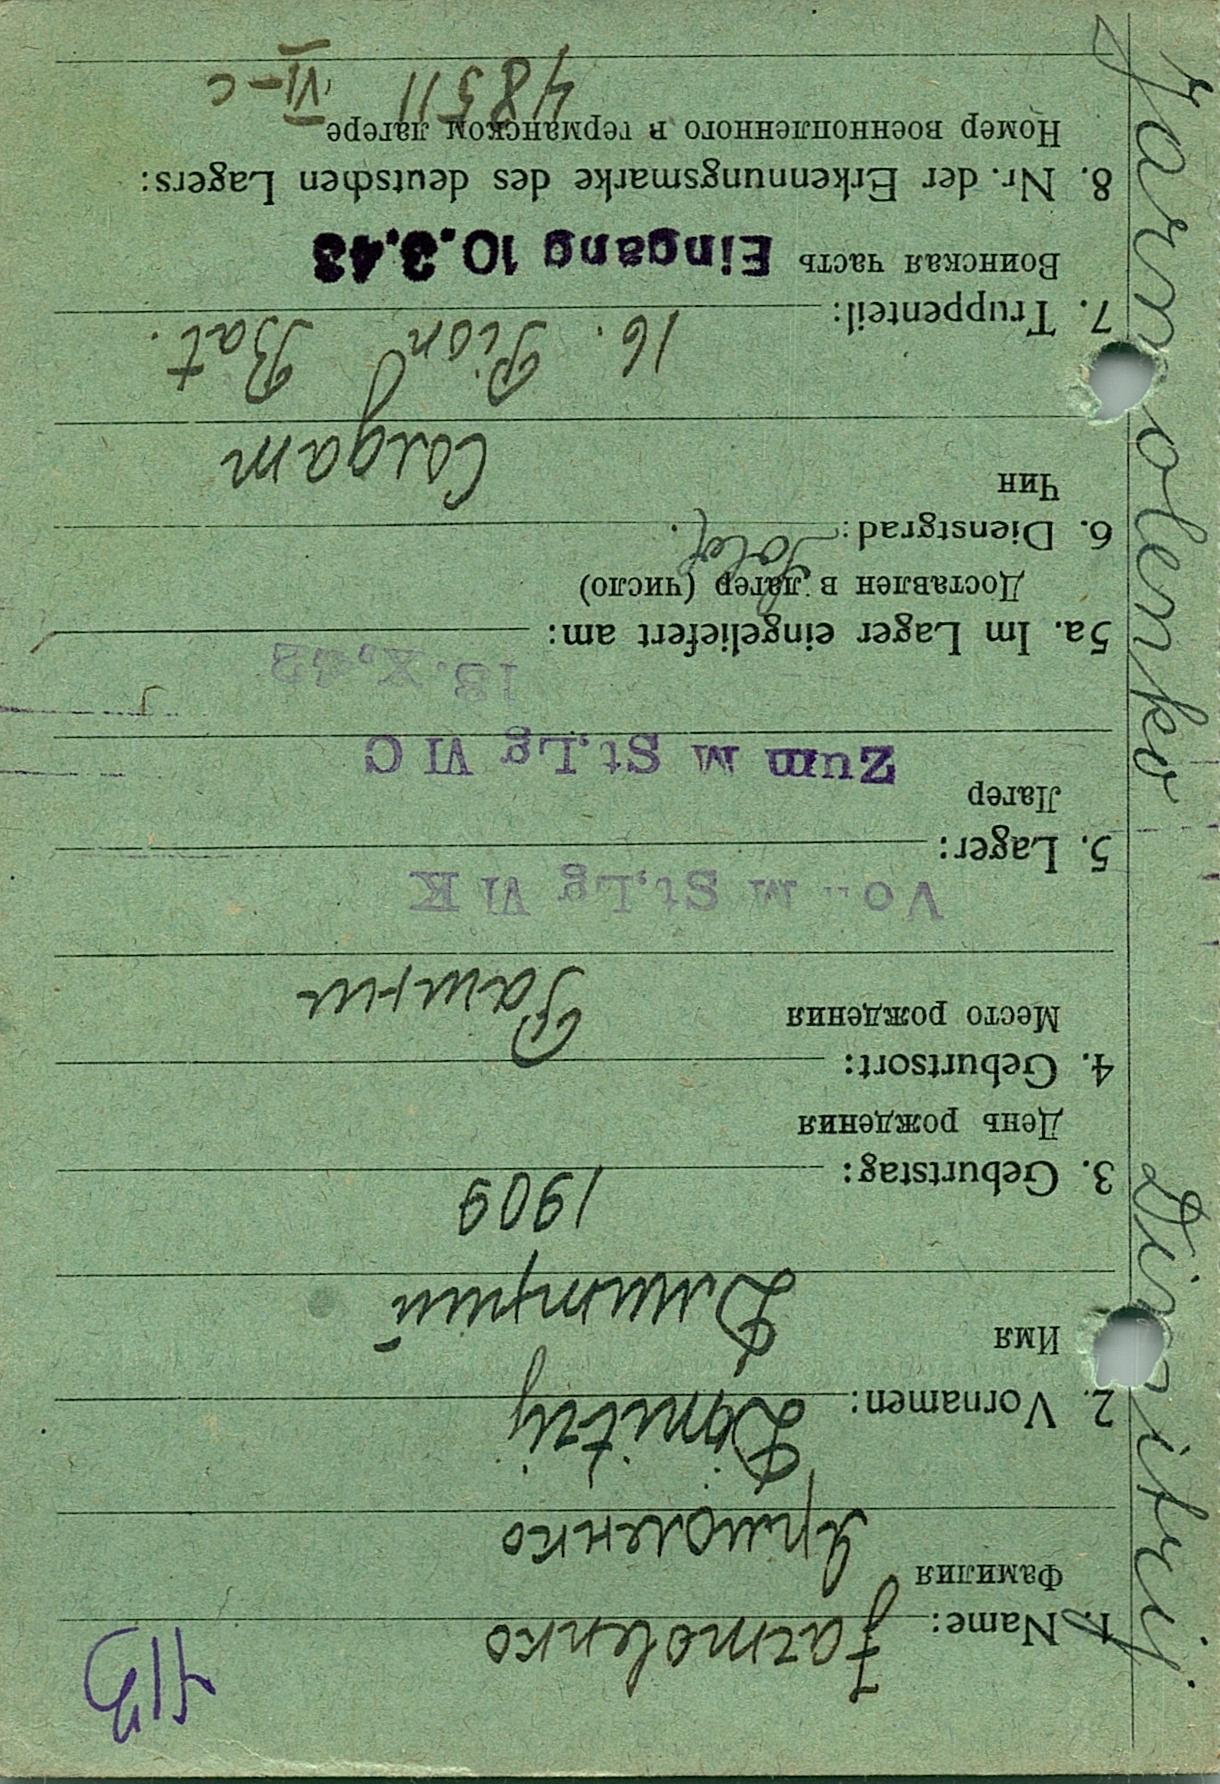 Jarmolenko Dimitrij.
1. Name: Jarmolenko
Фамилия
Ярмоленко
2. Vornamen: Dmitrij
Имя
Дмитрий
3. Geburtstag: 1909
День рождения
4. Geburtsort:
Место рождения
M St.Lg VI K
5. Lager:
Лагер
Zum M St.Lg VI C
13. X. 42
5a. Im Lager eingeliefert am:
Доставлен в лагер (число)
6. Dienstgrad: Soldt.
Чин
Солдат
16. Pion Bat.
7. Truppenteil:
Воинская часть Eingang 10.3.43
8. Nr. der Erkennungsmarke des deutschen Lagers:
Номер военнопленного в германском лагере
48511 VI-C